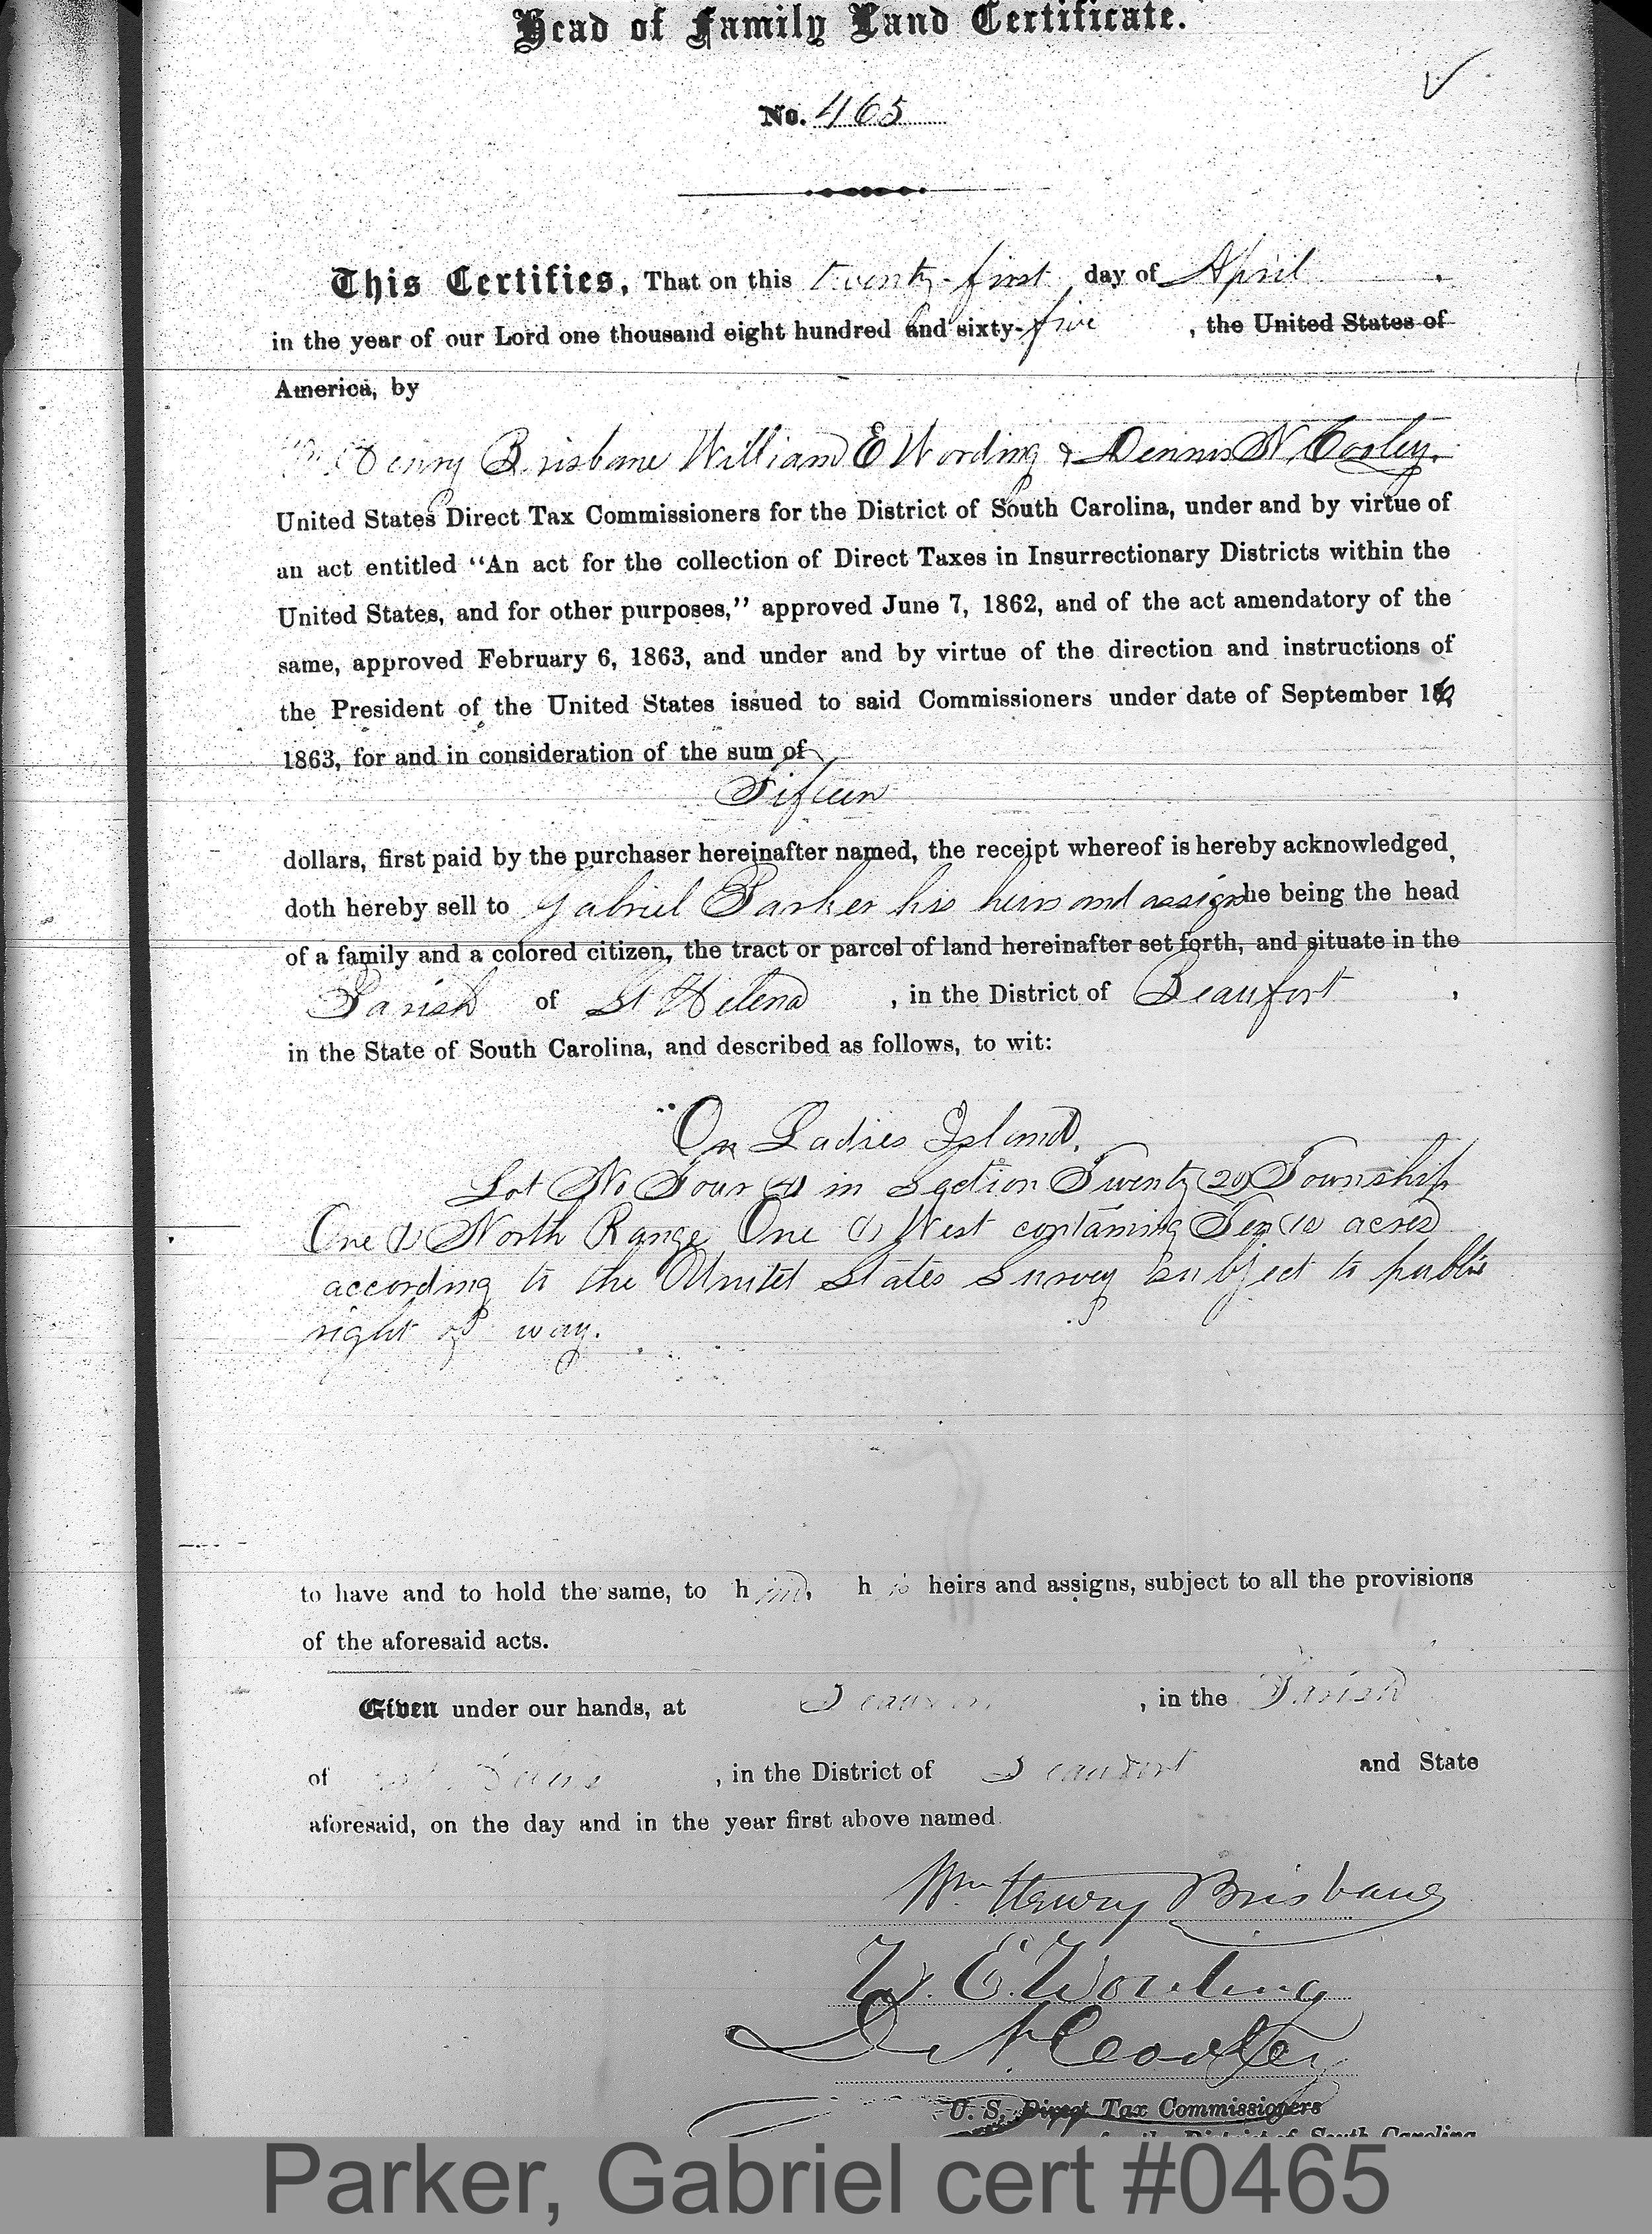 Head of Family Land Certificate.
No. 465
This Certifies, That on this twenty-first day of April
in the year of our Lord one thousand eight hundred and sixty-five, the United States of
America, by
Wm Henry Brisbane William E Wording & Dennis N. Cooley.
United States Direct Tax Commissioners for the District of South Carolina, under and by virtue of
an act entitled "An act for the collection of Direct Taxes in Insurrectionary Districts within the
United States, and for other purposes," approved June 7, 1862, and of the act amendatory of the
same, approved February 6, 1863, and under and by virtue of the direction and instructions of
the President of the United States issued to said Commissioners under date of September 16
1863, for and in consideration of the sum of
Fifteen
dollars, first paid by the purchaser hereinafter named, the receipt whereof is hereby acknowledged,
doth hereby sell to Gabriel Parker his heirs and assigns he being the head
of a family and a colored citizen, the tract or parcel of land hereinafter set forth, and situate in the
Parish of St Helena, in the District of Beaufort,
in the State of South Carolina, and described as follows, to wit:
On Ladies Island.
Lot No Four (4) in Section Twenty (20) Township
One (1) North Range One (1) West containing Ten (10) acres
according to the United States Survey subject to public
right of way.
to have and to hold the same, to him, his heirs and assigns, subject to all the provisions
of the aforesaid acts.
Given under our hands, at Beaufort, in the Parish
of St. Helena, in the District of Beaufort and State
aforesaid, on the day and in the year first above named.
Wm. Henry Brisbane
W. E. Wording
D. N. Cooley
U. S. Direct Tax Commissioners
for the District of South Carolina
Parker, Gabriel cert #0465